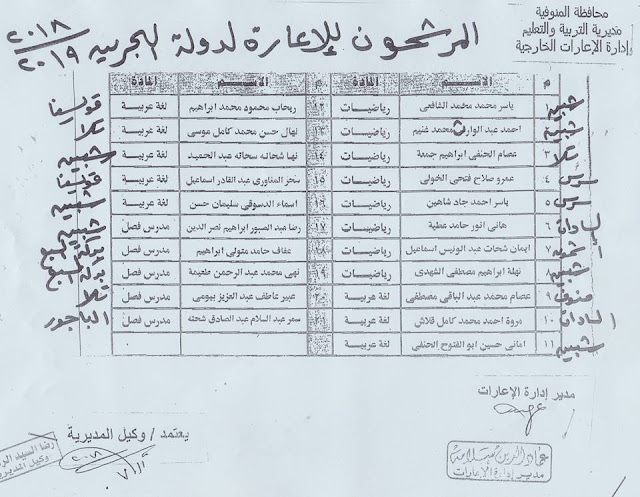 محافظة المنوفية
مديرية التربية والتعليم
إدارة الإعارات الخارجية
المرشحون للإعارة لدولة البحرين ٢٠١٨
٢٠١٩
م الاسم المادة م الاسم المادة
ياسر محمد محمد الشافعى رياضيات ١٢ ريحاب محمود محمد ابراهيم لغة عربية قويسنا
احمد عبد الوارث محمد غنيم رياضيات ١٣ نهال حسن محمد كامل موسى لغة عربية تلا
٣ عصام الحنفى ابراهيم جمعة رياضيات ١٤ نها شحاته سحاته عبد الحميد لغة عربية شبين
سرس ٤ عمرو صلاح فتحى الخولى رياضيات ١٥ سحر المناورى عبد القادر اسماعيل لغة عربية قويسنا
سرس ٥ ياسر احمد جاد شاهين رياضيات ١٦ اسماء الدسوقى سليمان حسن لغة عربية
السادات ٦ هانى انور حامد عطية رياضيات ١٧ رضا عبد الصبور ابراهيم نصر الدين مدرس فصل
٧ ايمان شحات عبد الونيس اسماعيل رياضيات ١٨ عفاف حامد متولى ابراهيم مدرس فصل بركة السبع
٨ نهلة ابراهيم مصطفى الشهدى رياضيات ١٩ نهى محمد عبد الرحمن طعيمة مدرس فصل بركة السبع
منوف ٩ عصام محمد عبد الباقى مصطفى لغة عربية ٢٠ عبير عاطف عبد العزيز بيومى مدرس فصل تلا
السادات ١٠ مروة احمد محمد كامل قلاش لغة عربية ٢١ سمر عبد السلام عبد الصادق شحته مدرس فصل الباجور
١١ امانى حسين ابو الفتوح الحنفى لغة عربية
مدير إدارة الإعارات
عماد الدين سلامة
مدير إدارة الإعارات
يعتمد / وكيل المديرية
رضا السيد
وكيل المديرية